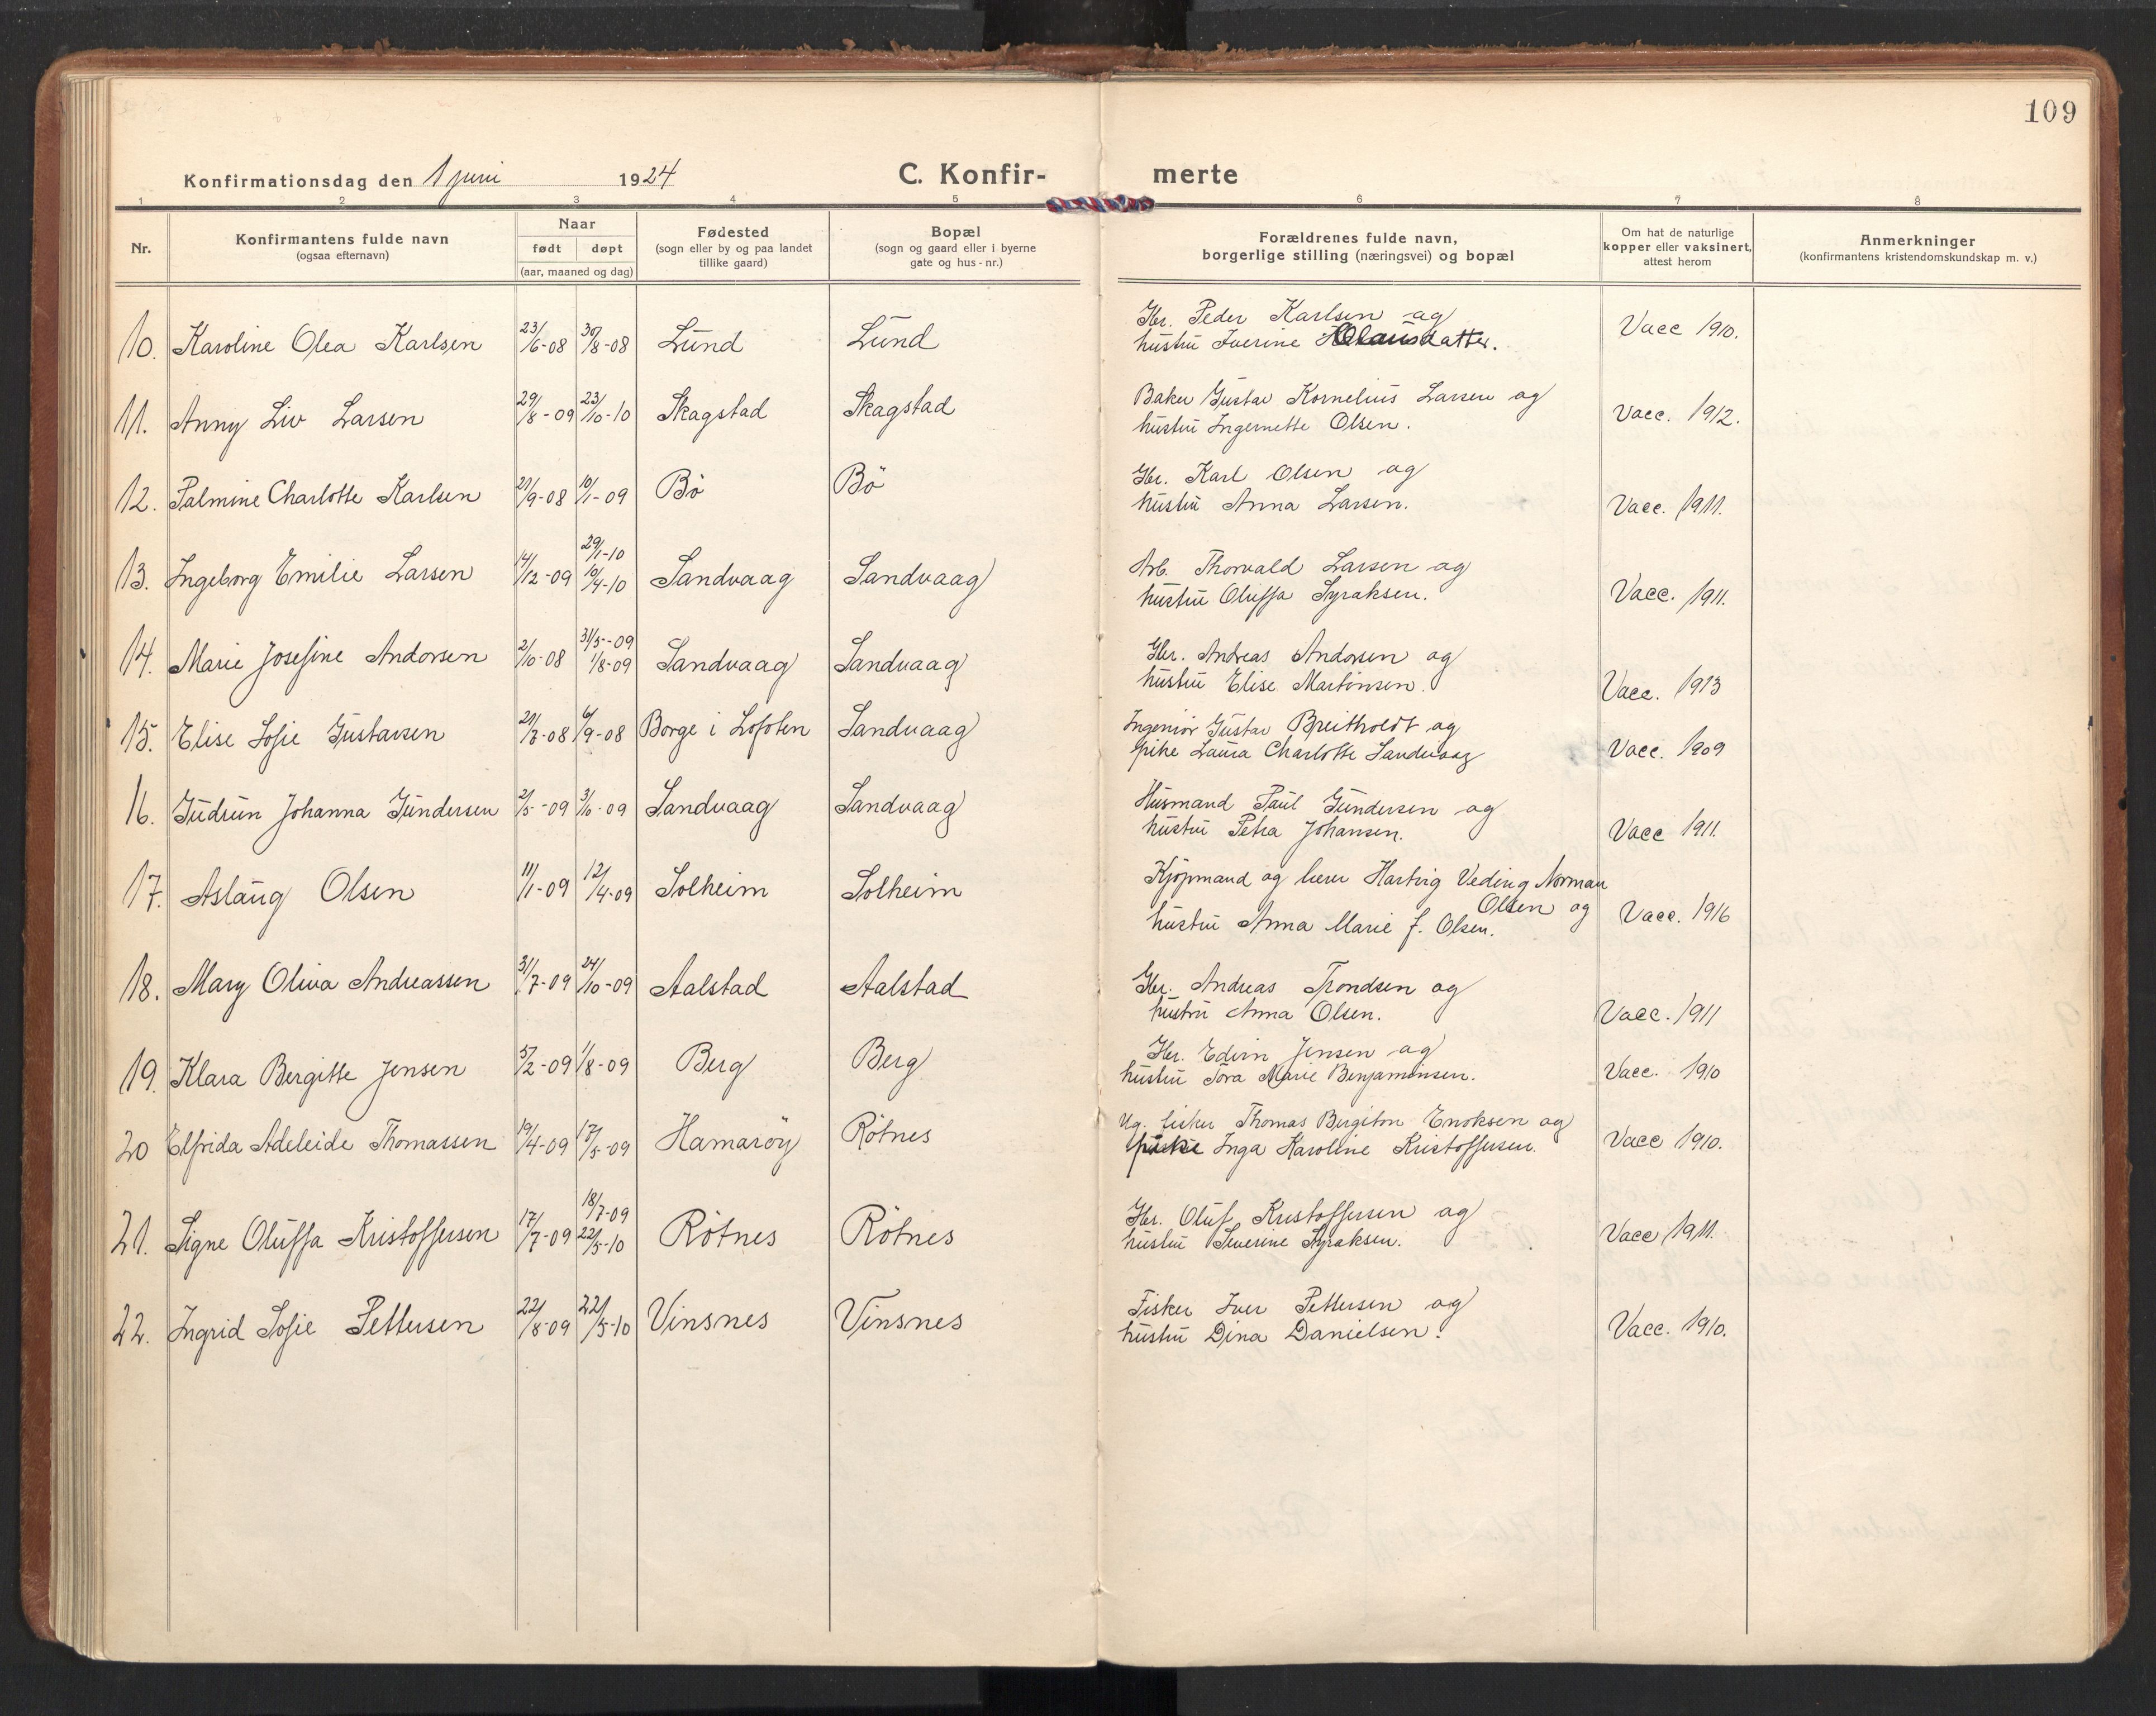 109
Konfirmationsdag den 1 juni 1924 C. Konfir- merte
1 2 3 4 5 6 7 8
Nr. Konfirmantens fulde navn (ogsaa efternavn) Naar født døpt (aar, maaned og dag) Fødested (sogn eller by og paa landet tillike gaard) Bopæl (sogn og gaard eller i byerne gate og hus-nr.) Forældrenes fulde navn, borgerlige stilling (næringsvei) og bopæl Om hat de naturlige kopper eller vaksinert, attest herom Anmerkninger (konfirmantens kristendomskundskap m. v.)
10. Karoline Olea Karlsen 23/6-08 30/8-08 Lund Lund Gbr. Peder Karlsen og
hustru Iverine Olausdatter. Vacc 1910.
11. Anny Liv Larsen 29/8-09 23/10-10 Skagstad Skagstad Baker Gustav Kornelius Larsen og
hustru Ingernette Olsen. Vacc. 1912.
12. Palmine Charlotte Karlsen 21/9-08 10/1-09 Bö Bö Gbr. Karl Olsen og
hustru Anna Larsen. Vacc. 1911.
13. Ingeborg Emilie Larsen 14/12-09 29/1-10 10/4-10 Sandvaag Sandvaag Arb. Thorvald Larsen og
hustru Oluffa Syraksen. Vacc. 1911.
14. Marie Josefine Andorsen 2/10-08 31/5-09 1/8-09 Sandvaag Sandvaag Gbr. Andreas Andorsen og
hustru Elise Martinsen. Vacc. 1913
15. Elise Sofie Gustavsen -08 6/9-08 Borge i Lofoten Sandvaag Ingeniör Gustav Breitholdt og
pike Laura Charlotte Sandvaag Vacc. 1909
16. Gudrun Johanna Gundersen 2/5-09 -09 Sandvaag Sandvaag Husmand Paul Gundersen og
hustru Petra Johansen. Vacc 1911.
17. Aslaug Olsen 11/1-09 12/4-09 Solheim Solheim Kjöpmand og lærer Hartvig Veding Norman
Olsen og
hustru Anna Marie J. Olsen. Vacc. 1916
18. Mary Oliva Andreassen 31/7-09 24/10-09 Aalstad Aalstad Gbr. Andreas Trondsen og
hustru Anna Olsen. Vacc. 1911
19. Klara Bergitte Jensen 5/2-09 1/8-09 Berg Berg Gbr. Edvin Jensen og
hustru Tora Marie Benjaminsen. Vacc. 1910
20 Elfrida Adeleide Thomassen 19/4-09 17/5-09 Hamaröy Rötnes Ug. fisker Thomas Bergiton Enoksen og
pike Inga Karoline Kristoffersen. Vacc 1910.
21. Signe Oluffa Kristoffersen 17/7-09 18/7-09 22/5-10 Rötnes Rötnes Gbr. Oluf Kristoffersen og
hustru Severine Syraksen. Vacc 1911.
22. Ingrid Sofie Pettersen 22/8-09 22/5-10 Vinsnes Vinsnes Fisker Iver Pettersen og
hustru Dina Danielsen. Vacc. 1910.